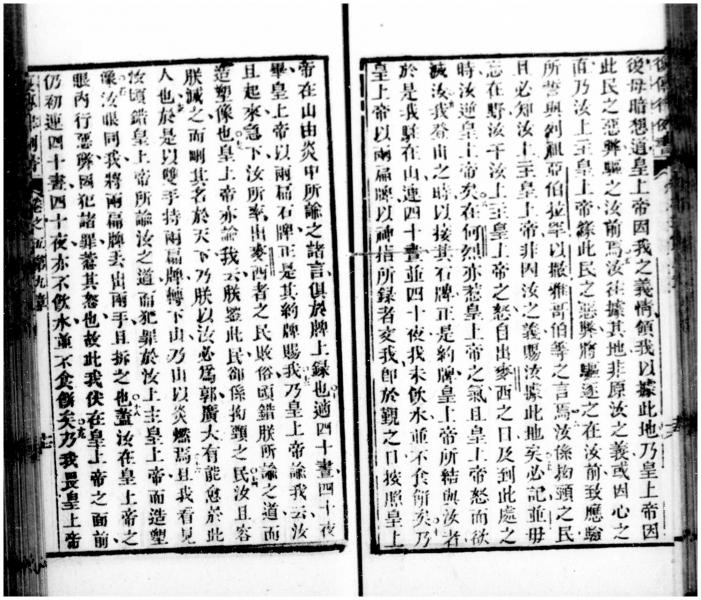 後母暗想道皇上帝因我之義情領我以據此地乃皇上帝因
此民之惡弊驅之汝前焉汝往據其地非原汝之義或因心之
直乃汝上主皇上帝緣此民之惡弊將驅逐之在汝前致應驗
所誓與列祖亞伯拉罕以撒雅哥伯等之言焉汝係拗頸之民
且必知汝上主皇上帝非因汝之義賜汝據此地矣必記並毋
忘在野汝干汝上主皇上帝之怒自出麥西之日及到此處之
時汝逆皇上帝矣在何烈亦惹皇上帝之氣且皇上帝怒而欲
滅汝我登山之時以接其石牌正是約牌皇上帝所結與汝者
於是我駐在山連四十晝並四十夜我未飲水並不食餅矣乃
皇上帝以兩扁牌以神指所錄者交我卽於覲之日按照皇上
帝在山由炎中所諭之諸言俱於牌上錄也適四十晝四十夜
畢皇上帝以兩扁石牌正是其約牌賜我乃皇上帝諭我云汝
且起來急下汝所率出麥西者之民敗俗頃錯朕所諭之道而
造塑像也皇上帝亦諭我云朕鑒此民卻係拗頸之民汝且容
朕滅之而剛其名於天下乃朕以汝必爲郭廣大有能愈於此
人也於是以雙手持兩扁牌轉下山乃山以炎燃焉且我看見
汝頃錯皇上帝所諭汝之道而犯罪於汝上主皇上帝而造塑
像汝眼同我將兩扁牌丢出兩手且拆之也蓋汝在皇上帝之
眼內行惡弊因犯諸罪惹其怒也故此我伏在皇上帝之面前
仍初連四十晝四十夜亦不飲水並不食餅矣乃我畏皇上帝